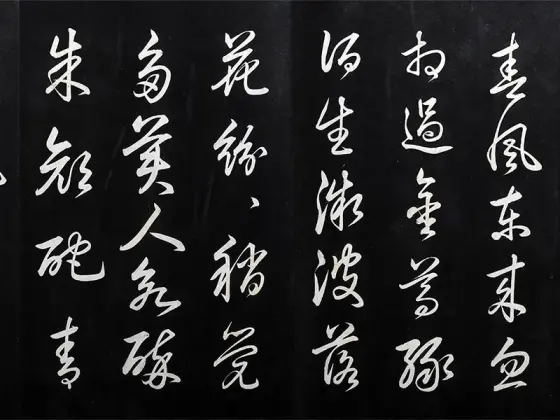 春風東來忽
相過金尊綠
酒生微波落
花紛〻稍覺
多美人欲醉
朱顏酡青